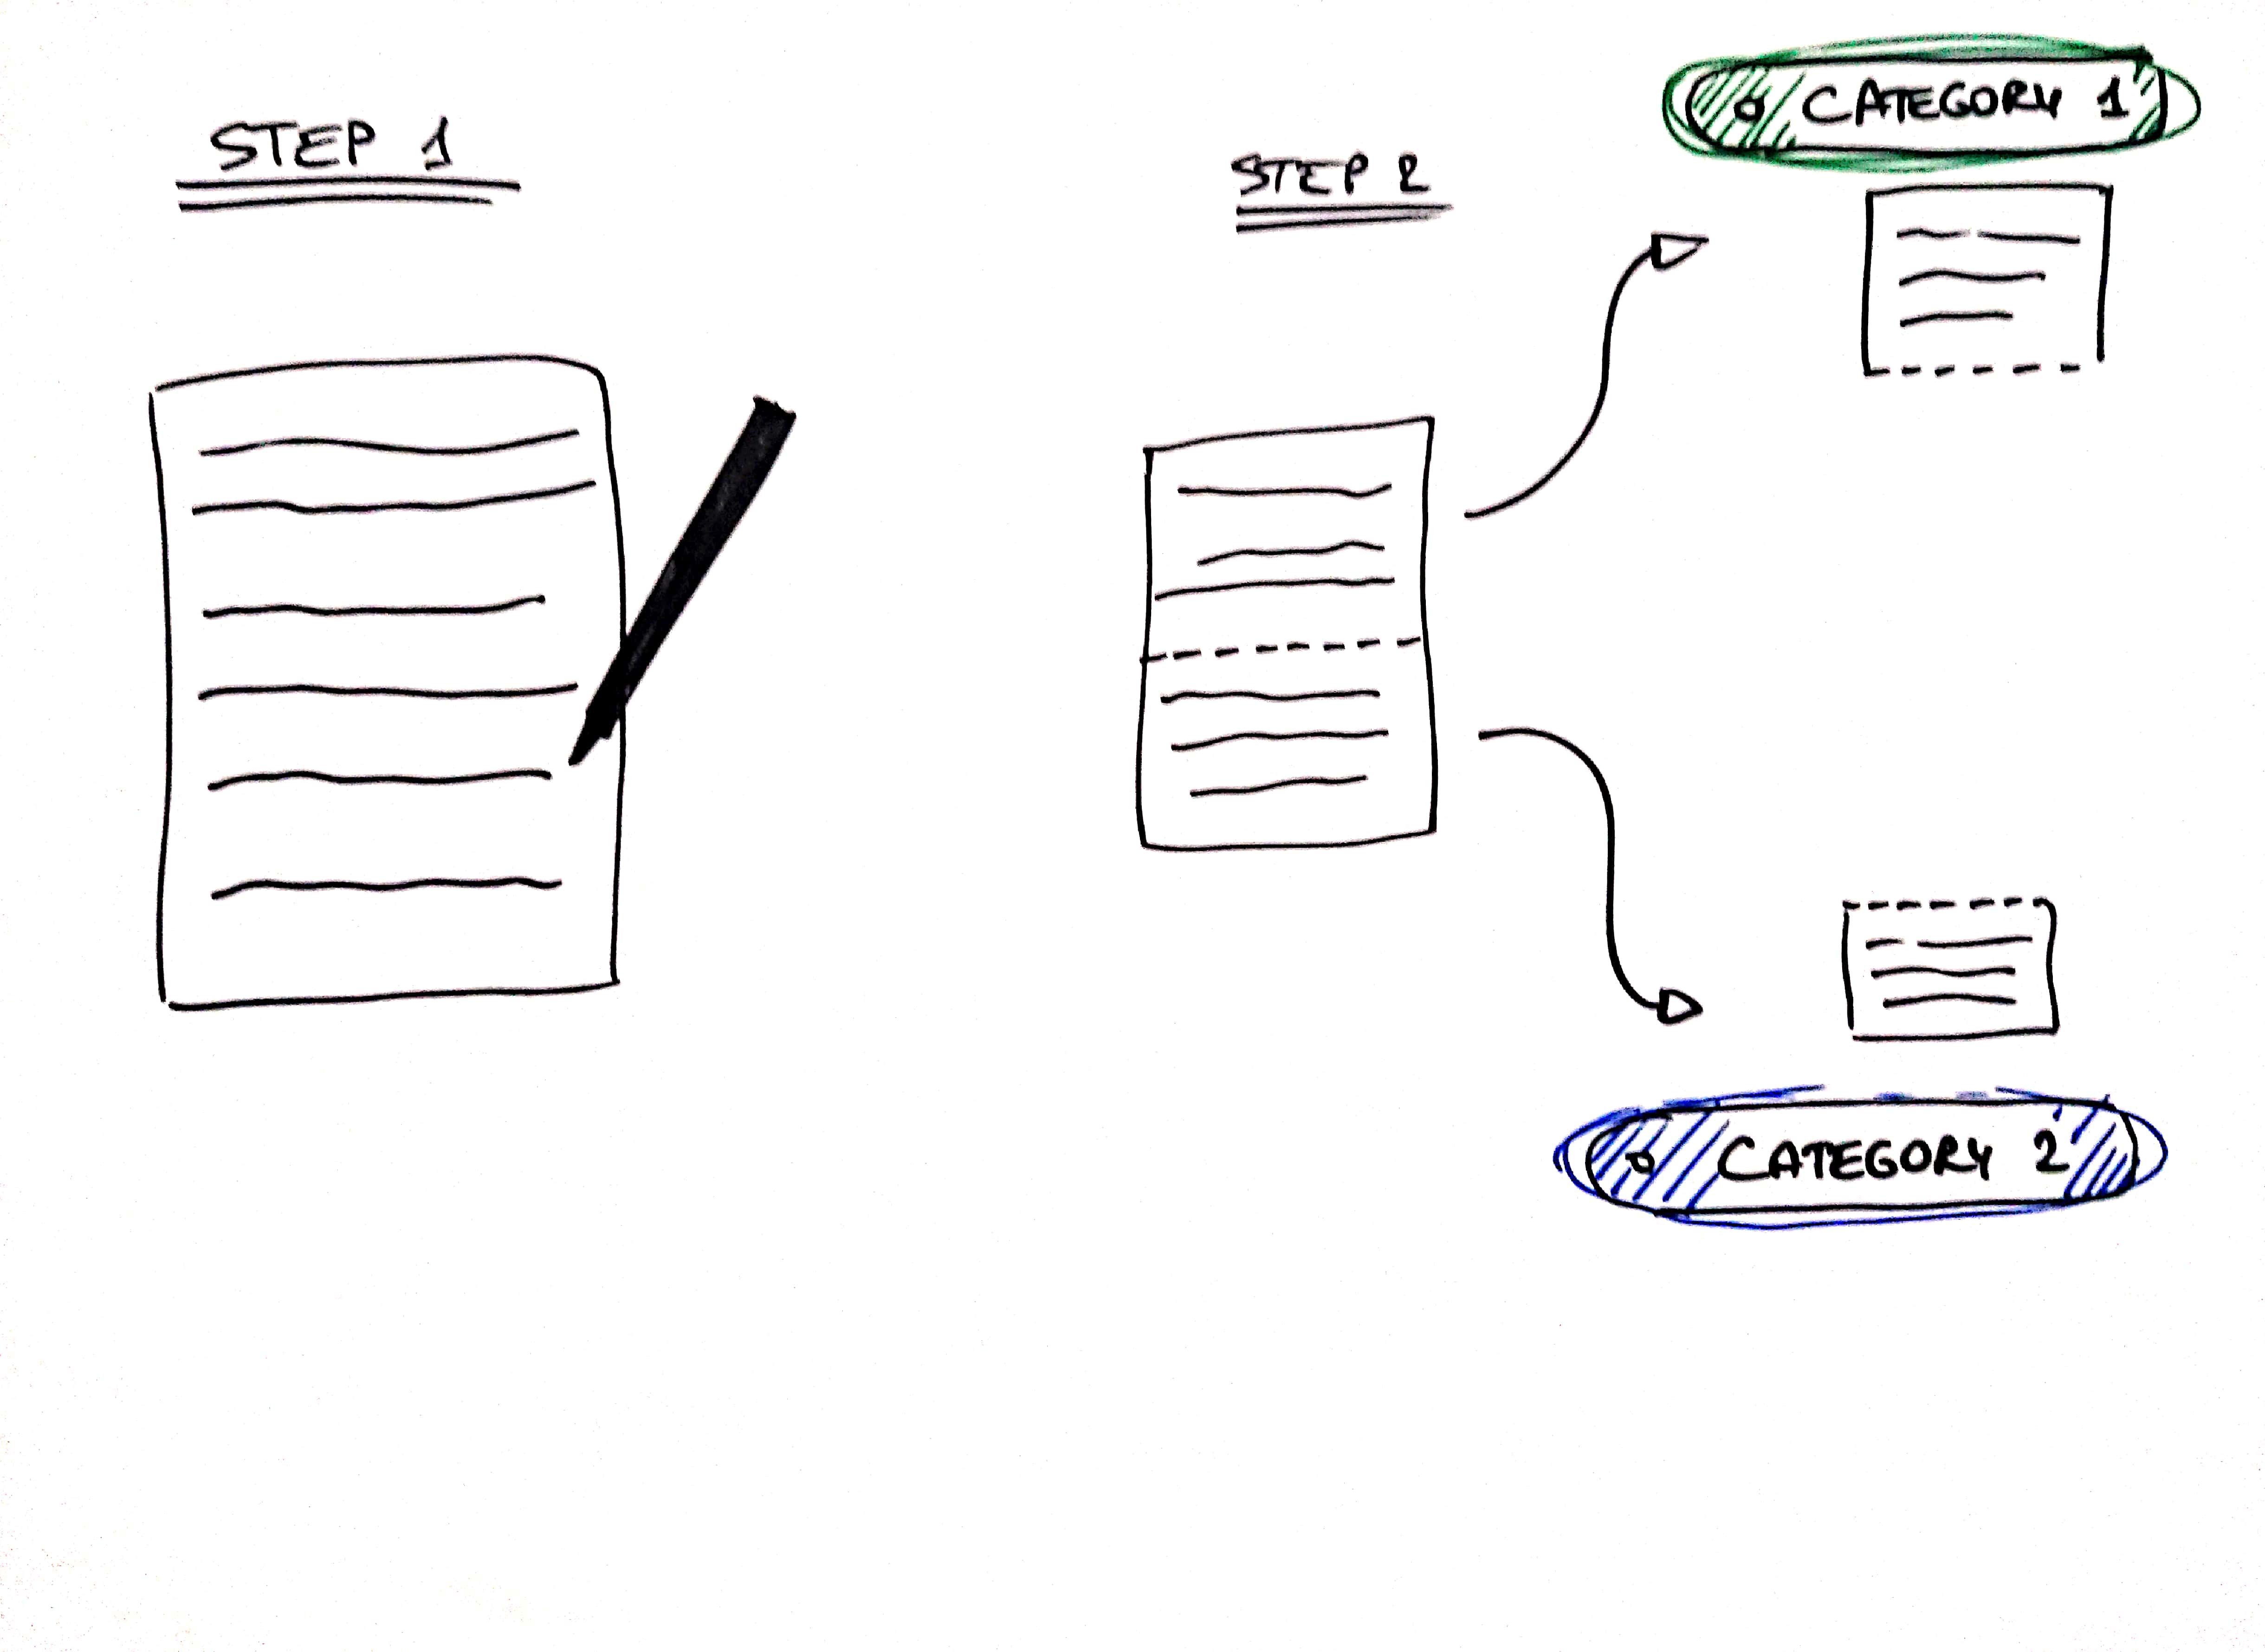 STEP 1
STEP 2
CATEGORY 1
CATEGORY 2